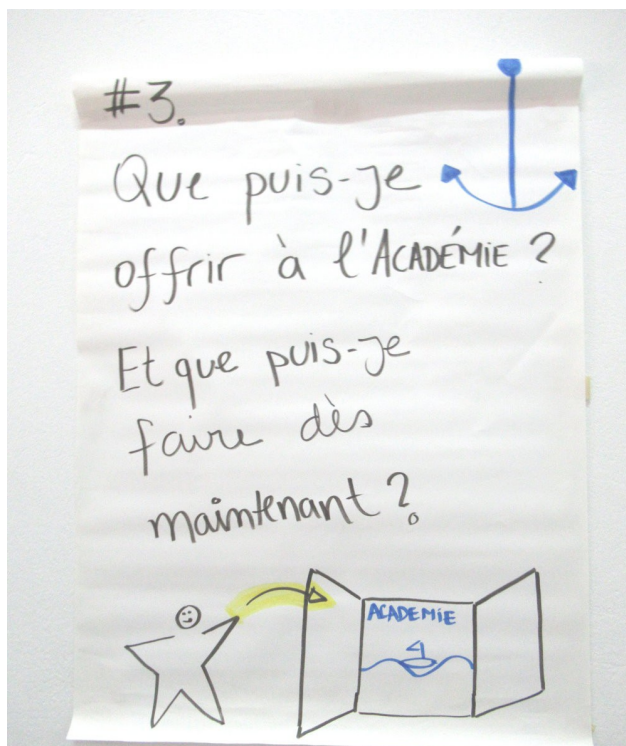 #3.
Que puis-je
offrir à l'ACADÉMIE ?
Et que puis-je
faire dès
maintenant ?
ACADEMIE